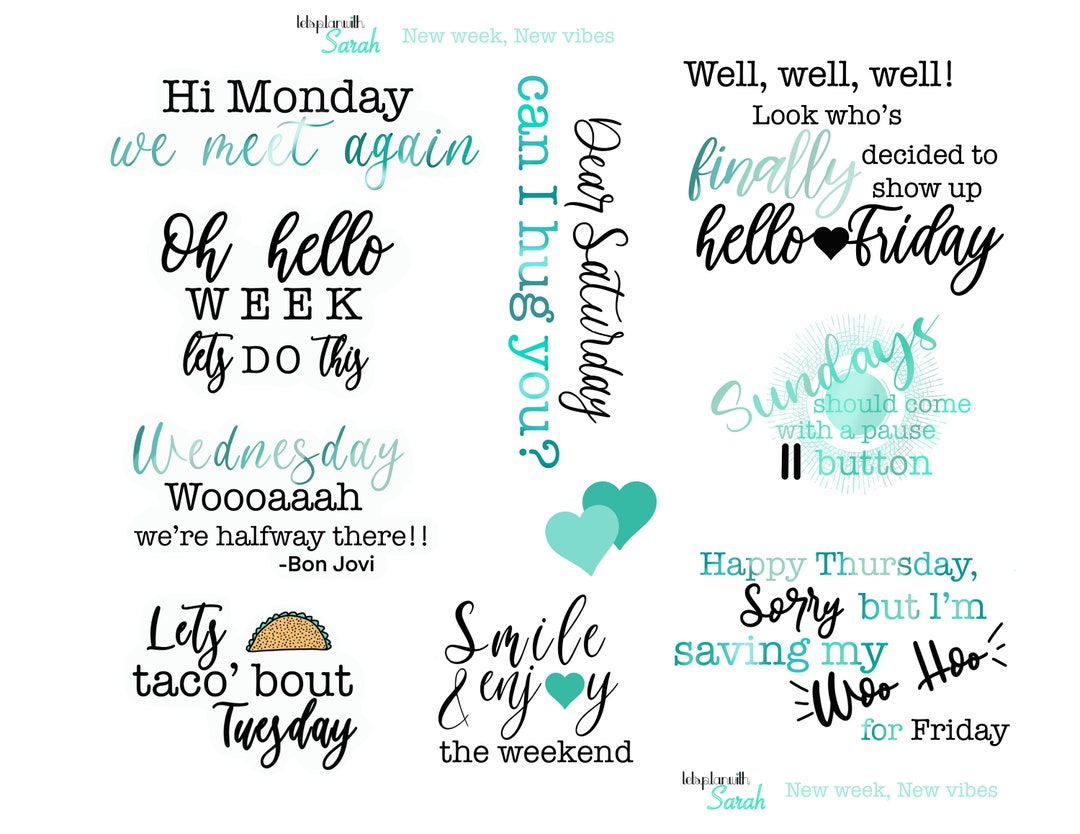 letsplanwith
Sarah
New week, New vibes
Hi Monday
we meet again
Oh hello
WEEK
lets DO this
Wednesday
Woooaaah
we're halfway there!!
-Bon Jovi
Lets
taco' bout
Tuesday
Dear Saturday
can I hug you?
Smile
& enjoy
the weekend
Well, well, well!
Look who's
finally decided to
show up
hello Friday
Sundays
should come
with a pause
button
Happy Thursday,
Sorry but I'm
saving my
Woo Hoo
for Friday
letsplanwith
Sarah
New week, New vibes